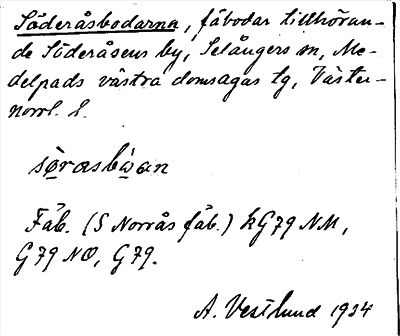 Söderåsbodarna, fäbodar tillhöran-
de Söderåsens by, Selångers sn, Me-
delpads västra domsagas tg, Väster-
norrl. l.
Fäb. (S Norrås fäb.) kG79 NM,
G79 NO, G79.
A. Vestlund 1934